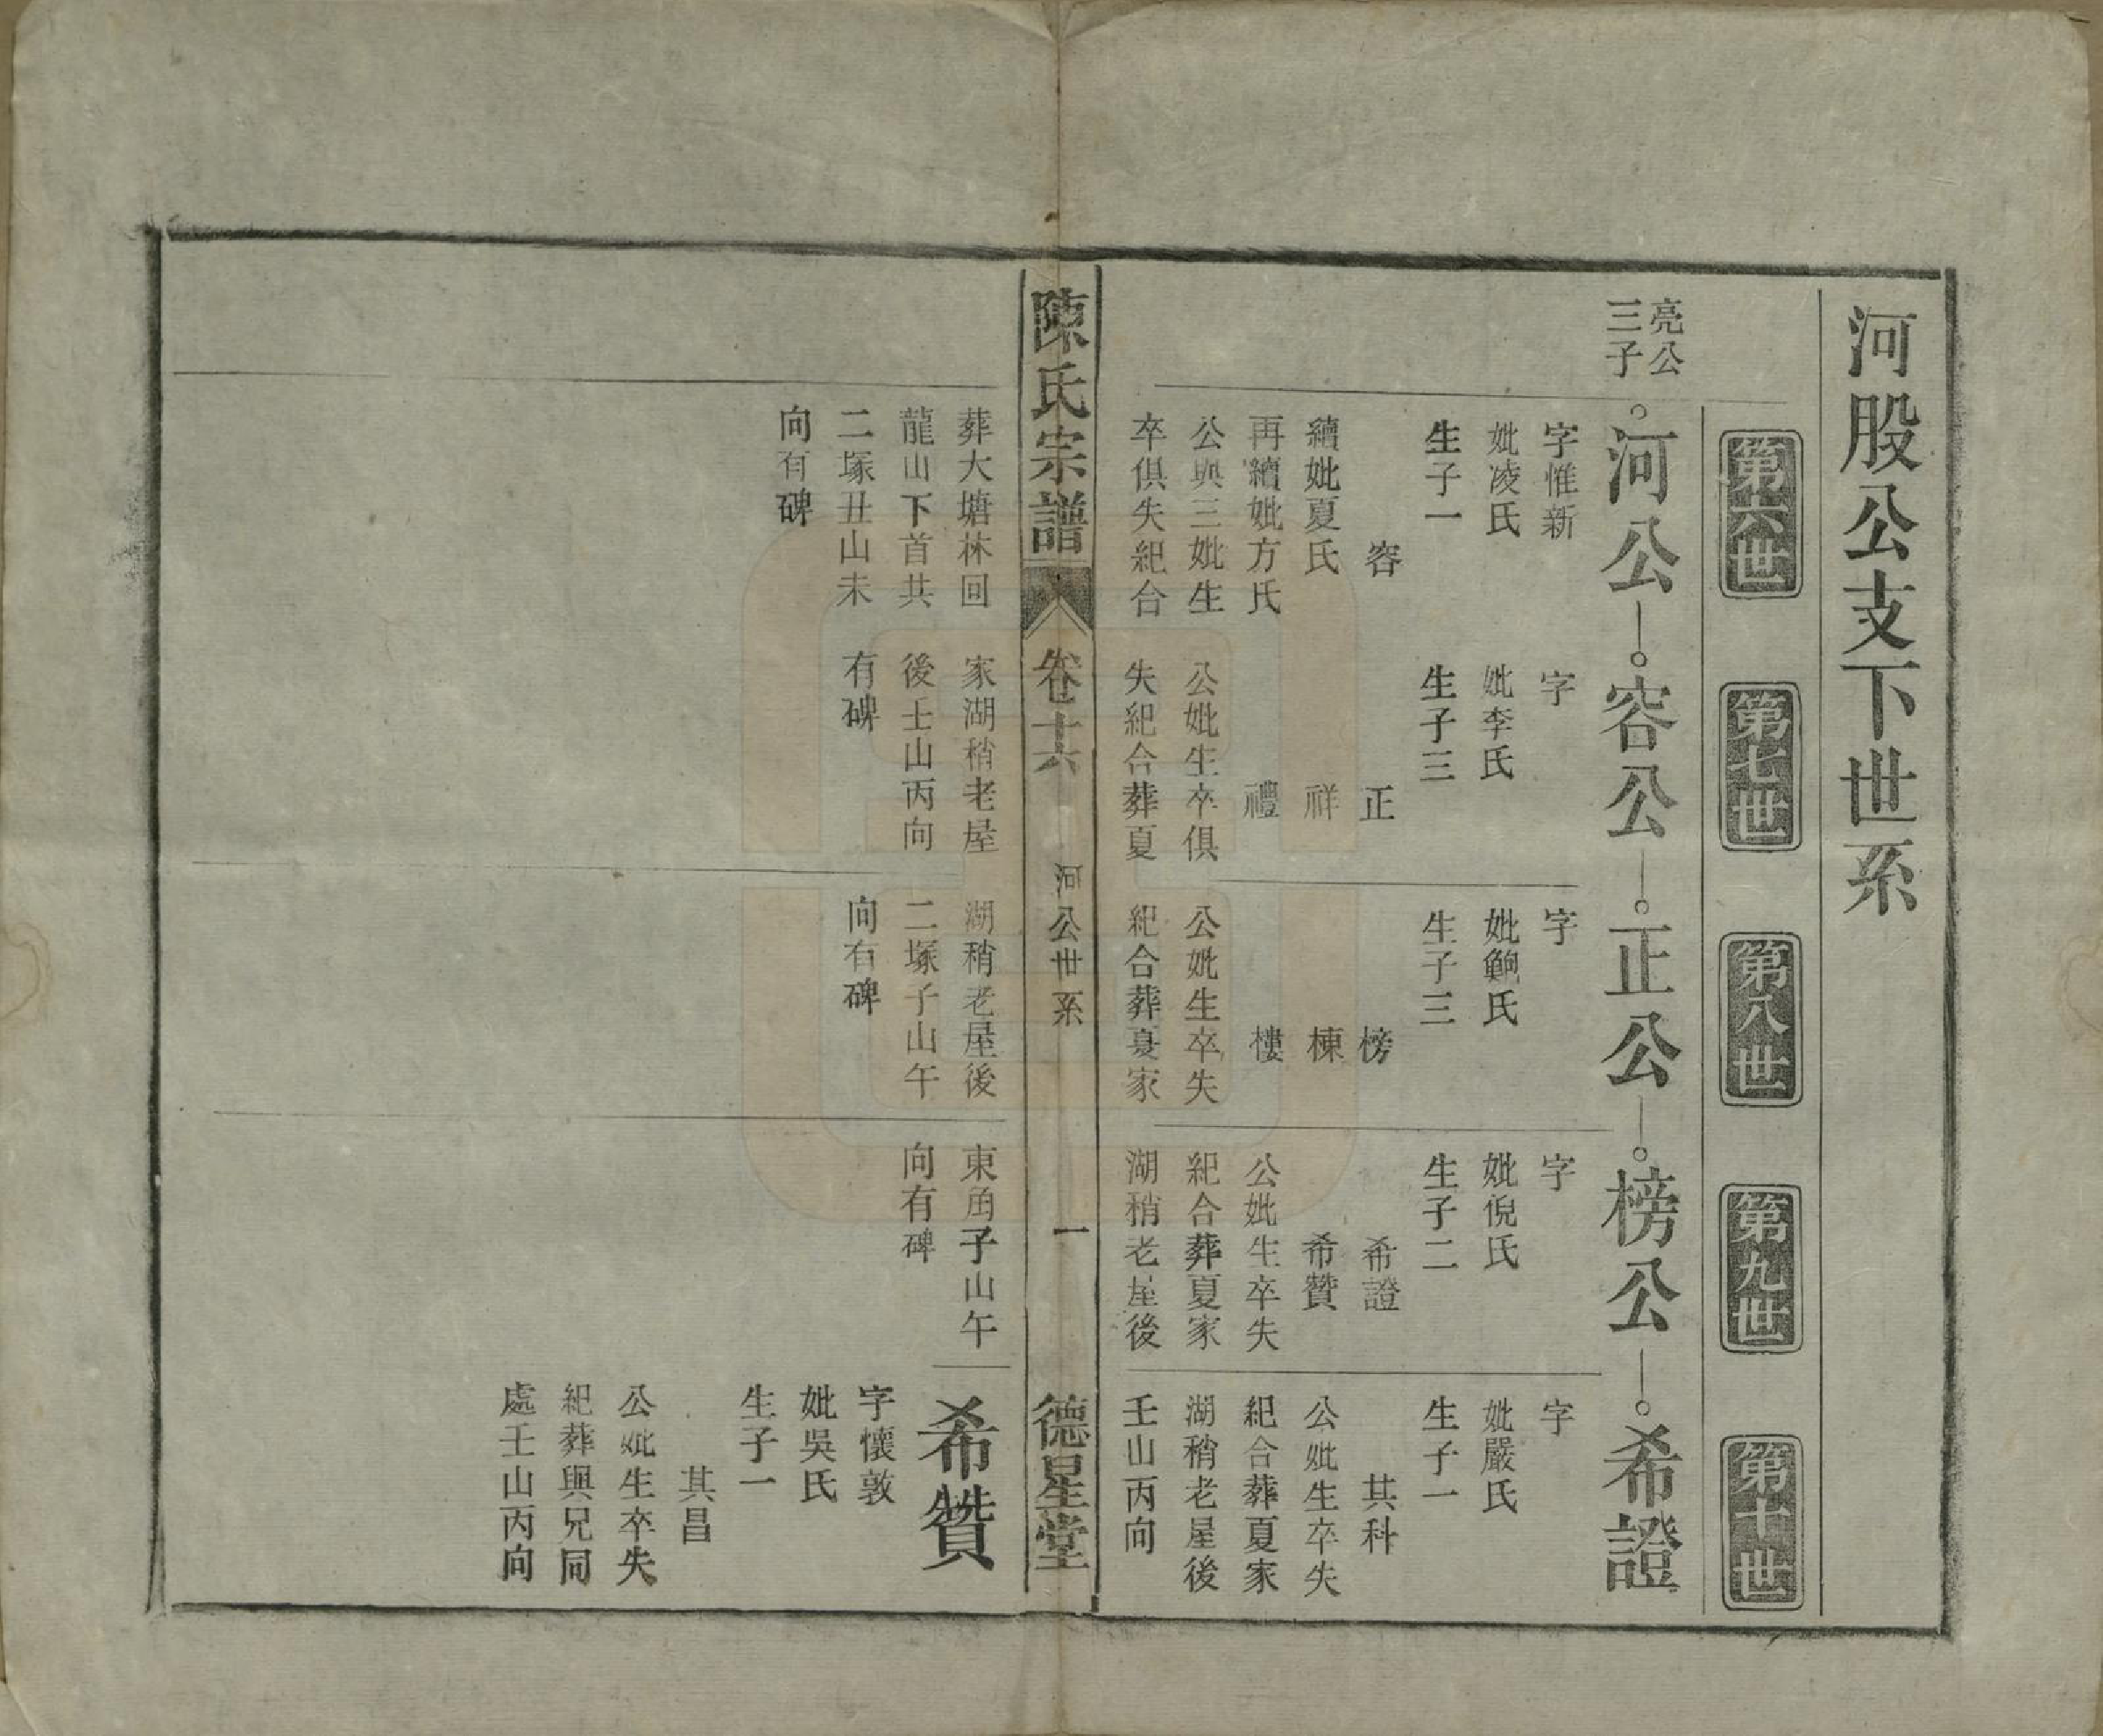 河股公支下世系
第六世
第七世
第八世
第九世
第十世
亮公
三子
河公
字惟新
妣凌氏
生子一
容
續妣夏氏
再續妣方氏
公與三妣生
卒俱失紀合
葬大塘林回
龍山下首共
二塚丑山未
向有碑
容公
字
妣李氏
生子三
正
祥
禮
公妣生卒俱
失紀合葬夏
家湖稍老屋
後壬山丙向
有碑
正公
字
妣鮑氏
生子三
榜
棟
樓
公妣生卒失
紀合葬夏家
湖稍老屋後
二塚子山午
向有碑
榜公
字
妣倪氏
生子二
希證
希贊
公妣生卒失
紀合葬夏家
湖稍老屋後
東角子山午
向有碑
希證
字
妣嚴氏
生子一
其科
公妣生卒失
紀合葬夏家
湖稍老屋後
壬山丙向
希贊
字懷敦
妣吳氏
生子一
其昌
公妣生卒失
紀葬與兄同
處壬山丙向
陳氏宗譜
卷十六
河公世系
一
德星堂